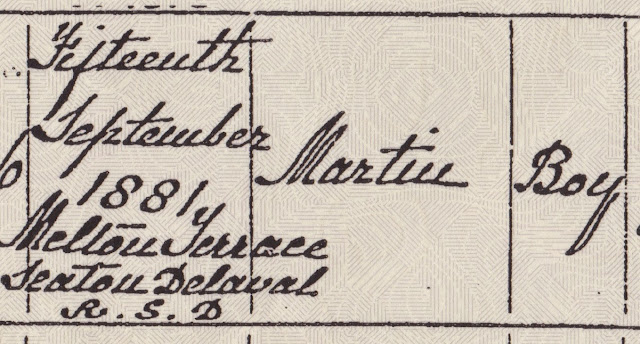 Fifteenth
September
1881
Melton Terrace
Seaton Delaval
R. S. D
Martin
Boy